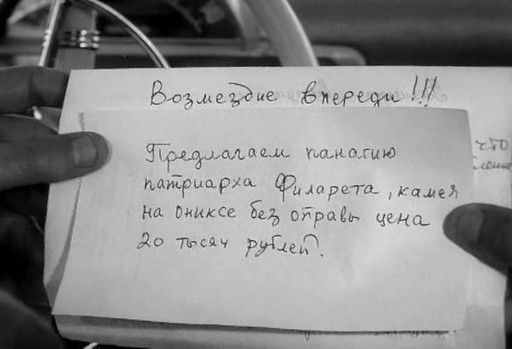 Возмездие впереди!!!
Предлагаем панагию
патриарха Филарета, камея
на ониксе без оправы цена
20 тысяч рублей.
что